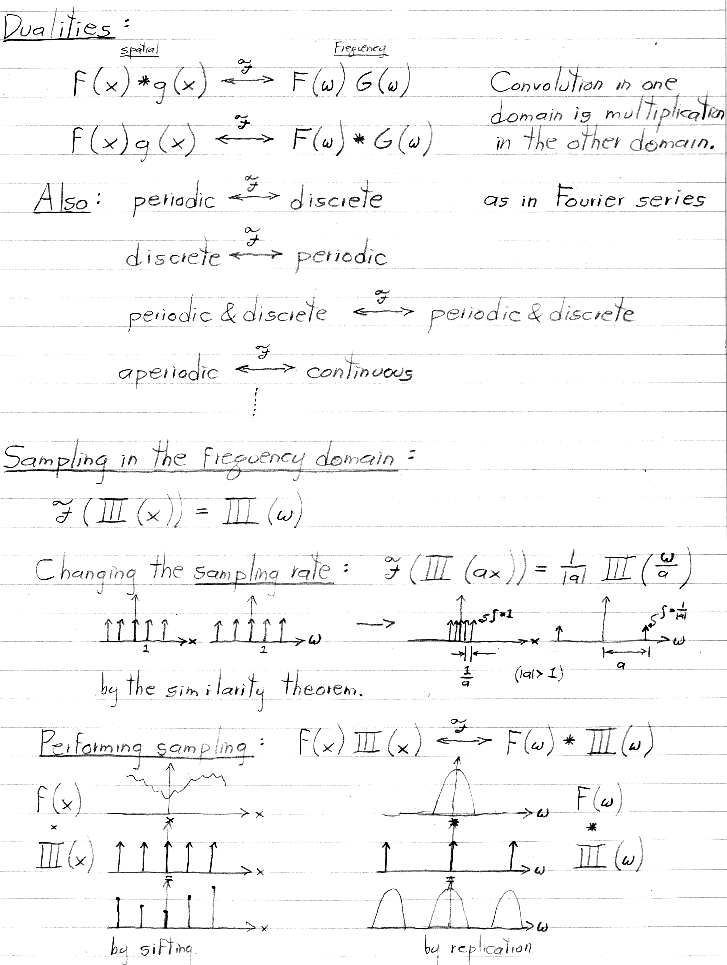 Dualities:
spatial Frequency
f(x) * g(x) ⟷ℱ F(ω) G(ω) Convolution in one
domain is multiplication
f(x) g(x) ⟷ℱ F(ω) * G(ω) in the other domain.
Also: periodic ⟷ℱ discrete as in Fourier series
discrete ⟷ℱ periodic
periodic & discrete ⟷ℱ periodic & discrete
aperiodic ⟷ℱ continuous
⋮
Sampling in the frequency domain:
ℱ(III(x)) = III(ω)
Changing the sampling rate: ℱ(III(ax)) = 1/|a| III(ω/a)
1 x 1 ω → ∫=1 x ∫=1/|a| ω
1/a (|a|>1) a
by the similarity theorem.
Performing sampling: f(x) III(x) ⟷ℱ F(ω) * III(ω)
f(x) x ω F(ω)
× × * *
III(x) x ω III(ω)
= =
x ω
by sifting by replication